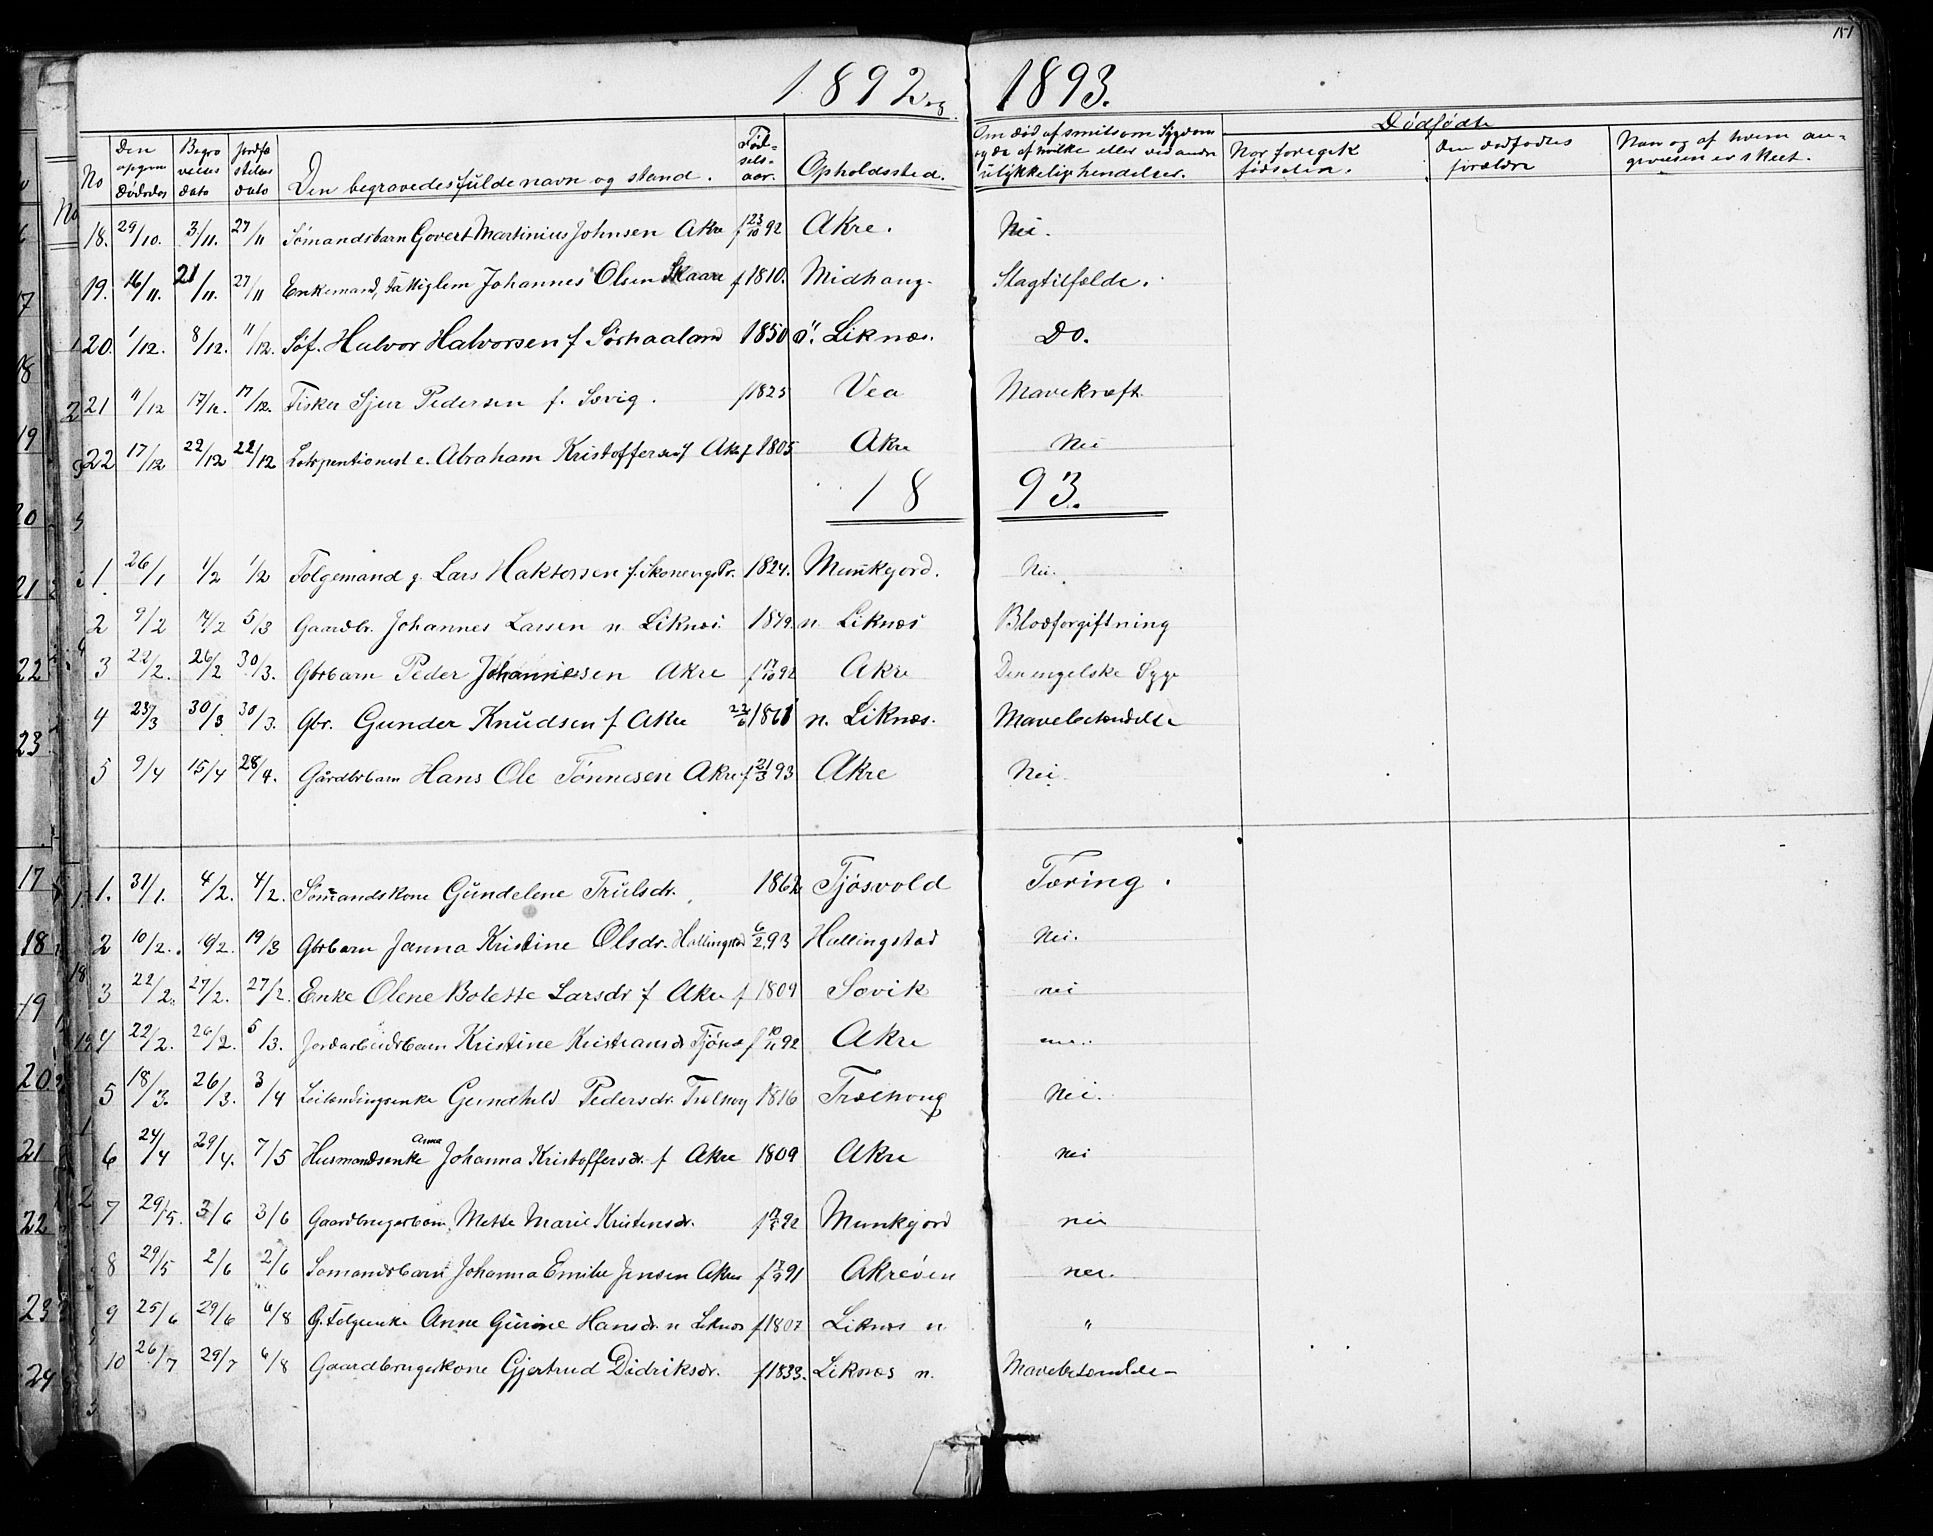 151
1892 og 1893.
No Den opgivne Dødsdag Begravelses dato Jordfæstelses dato Den begravedes fulde navn og stand. Fødselsaar. Opholdssted. Om død af smitsom Sygdom og da af hvilke eller ved andre ulykkelige hendelser. Dødfødte
Nor foregik fødselen. Den dødfødtes forældre Nav og af hvem angivelsen er skeet.
18. 29/10. 3/11. 27/11 Sømandsbarn Govert Martinius Johnsen Akre f 23/10 92 Akre. Nei.
19. 16/11. 21/11. 27/11 Enkemand, Fattiglem Johannes Olsen Skaare f 1810. Midhaug. Slagtilfælde.
20. 1/12. 8/12. 11/12. Søf. Halvor Halvorsen f Sørhaaland 1850 ø. Liknæs. Do.
21 11/12 17/12. 17/12. Fisker Sjur Pedersen f. Sævig. f 1825 Vea Mavekræft.
22 17/12 22/12 22/12 Lodspentionest e. Abraham Kristoffersen f Akre f 1805 Akre Nei
1893.
1. 26/1 1/2 1/2 Folgemand g. Lars Haktorsen f. Skonengs Pr. 1824. Munkejord. Nei.
2 9/2 14/2 5/3 Gaardbr. Johannes Larsen n. Liknæs. 1849. n. Liknæs Blodforgiftning
3 22/2. 26/2 30/3. Gbrbarn Peder Johannesen Akre f 17/10 92 Akre Den engelske Syge
4 23/3 30/3 30/3. Gbr. Gunder Knudsen f Akre 22/6 1861 n. Liknæs. Mavebetændelse
5 9/4 15/4 28/4. Gårdbrbarn Hans Ole Tønnesen Akre f 21/3 93 Akre Nei.
1. 31/1. 4/2. 4/2. Sømandskone Gundelene Trulsdr. 1862 Tjøsvold Tæring.
2 10/2. 16/2. 19/3 Gbrbarn Janna Kristine Olsdr. Hallingstad 6/2 93 Hallingstad Nei.
3 22/2. 27/2. 27/2. Enke Olene Bolette Larsdr f Akre f 1809 Sævik nei
4 22/2. 26/2. 5/3. Jordarbeidrbarn Kristine Kristiansdr Tjøsv f 10/11 92 Akre nei.
5 18/3. 26/3. 3/4 Leilendingsenke Gundhild Pedersdr. Trælhoug 1816 Trælhoug Nei.
6 24/4 29/4. 7/5 Husmandsenke Anna Johanna Kristoffersdr. f Akre 1809 Akre nei
7 29/5. 3/6 3/6 Gaardbrugerbarn, Mette Marie Kristensdr. 92 Munkejord nei
8 29/5 2/6 2/6 Sømandsbarn Johanna Emilie Jensen Akre f 17/9 91 Akreøen nei.
9 25/6 29/6 6/8 G. Folgeenke Anne Gurine Hansdr. n Liknæs f 1807 Liknæs n "
10 26/7 29/7 6/8 Gaardbrugerkone Gjertrud Didriksdr. f 1833. Liknæs n. Mavebetændelse